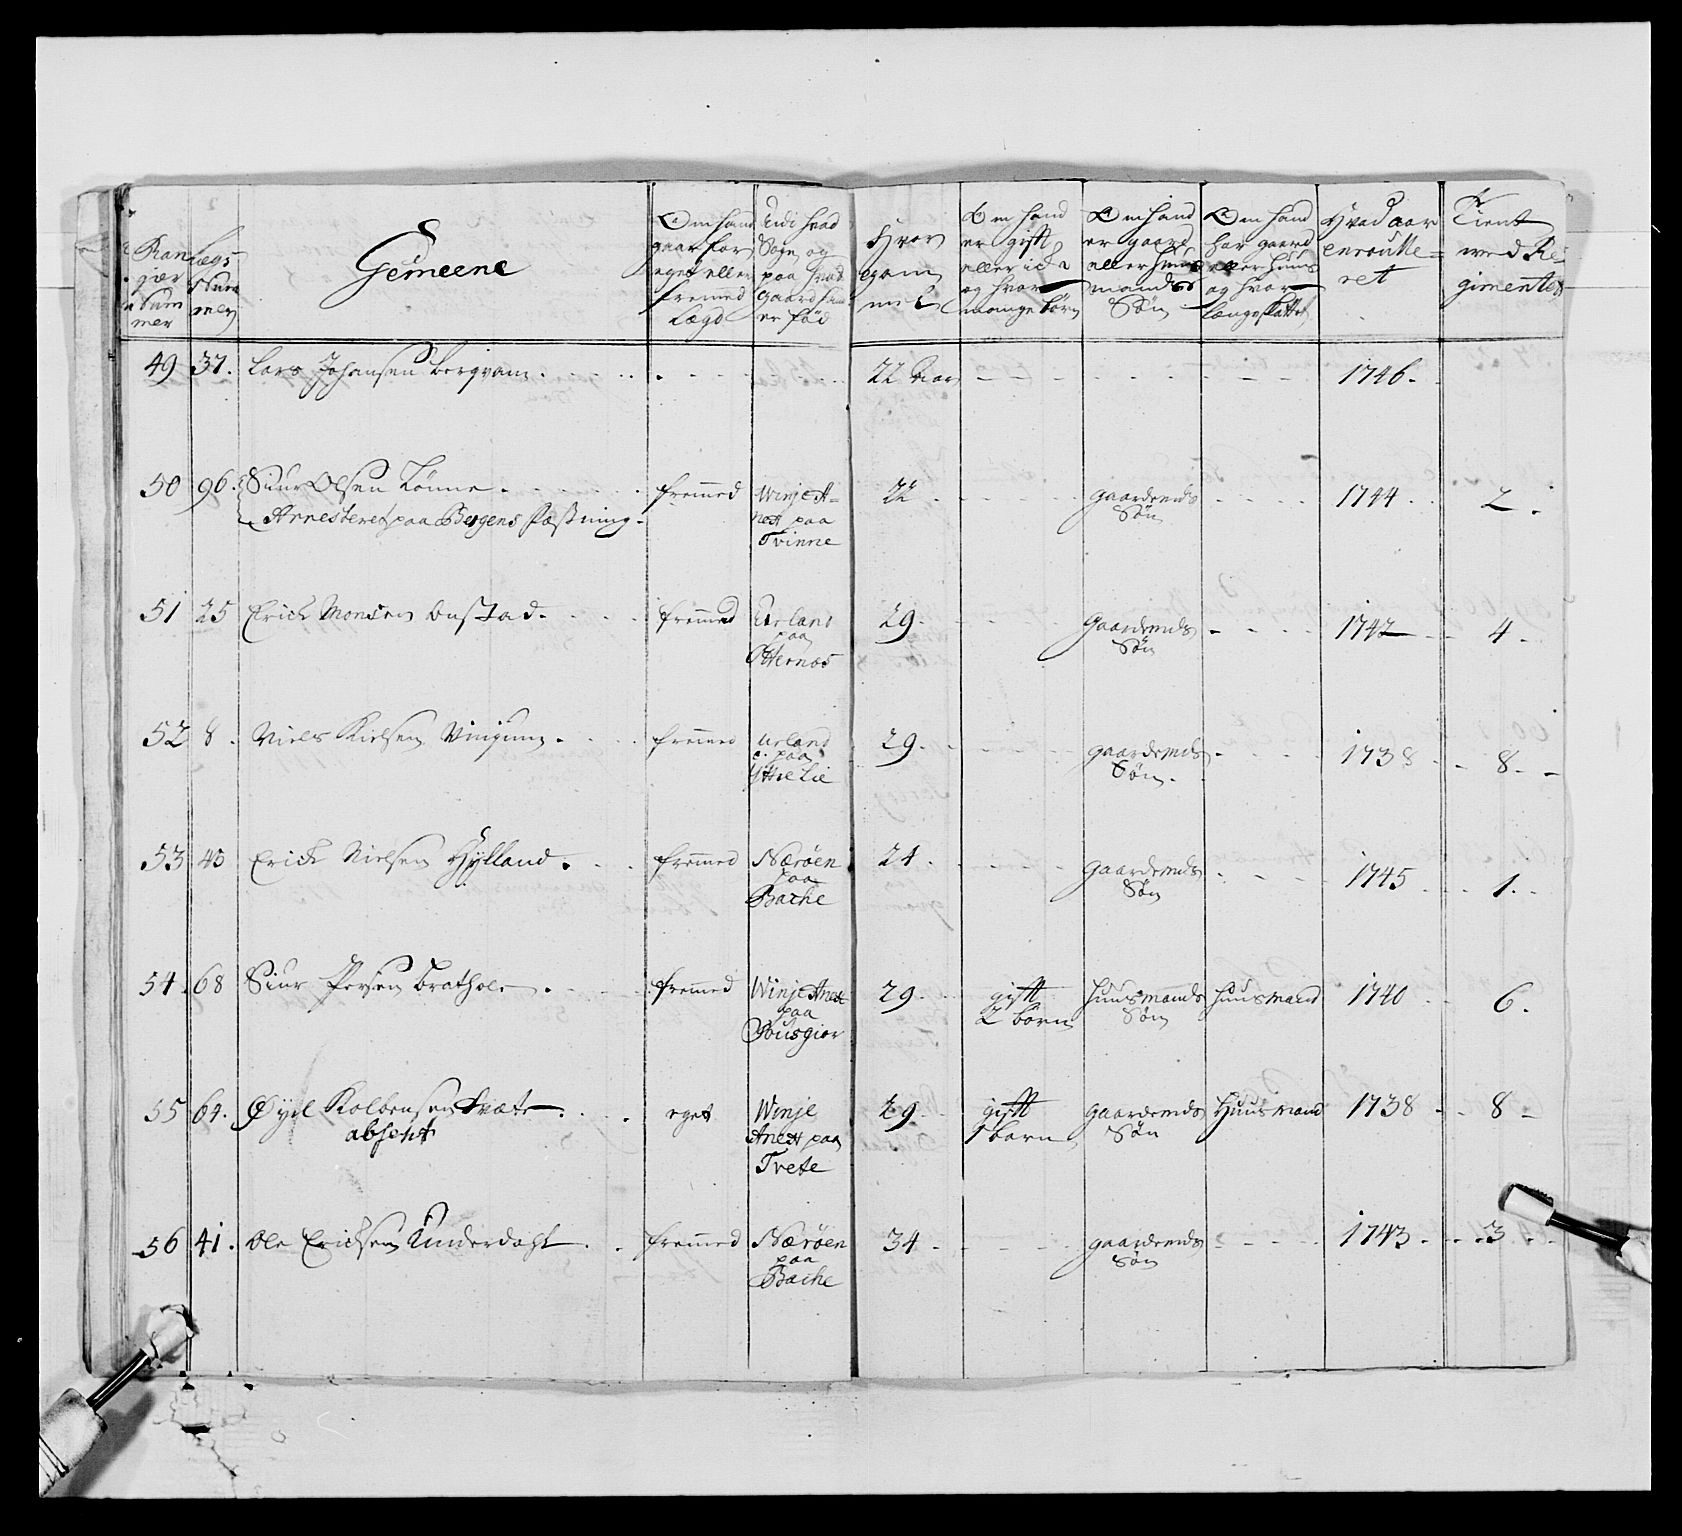 Rangeer Nummer
Lægs Nummer
Gemeene
Om hand gaar for eget eller fremmed Lægd
Udi hvad Sogn og paa hvad Gaard hand er fød
Hvor gammel
Om hand er gift eller icke og hvor mange børn
Om hand er gaard eller huusmands Søn
Om hand har gaard eller huus og hvor længe
Hvad aar enroulleret
Tient med Regimentet
49 37. Lars Johansen Bergqvam 22 aar 1746.
50 96. Siur Olsen Lønne fremmed Winje Anext paa Tvinne 22 gaardmds Søn 1744 2.
Arresteret paa Bergens Fæstning.
51 25 Erick Monsen Onstad fremmed Urland paa Otternes 29. Gaardmds Søn 1742 4.
52 8. Niels Nielsen Vinjum fremmed Urland paa Yttre Lie 29. gaardmds Søn. 1738 8.
53 45 Erick Nielsen Hylland fremmed Nærøen paa Bache 24. gaardmds Søn 1745 1.
54. 68 Siur Persen Brathole fremmed Winje Anext paa 29. gift 2 børn huusmands Søn huusmand 1740 6.
55 64. Øyel Kolbensen Tvæte eget Winje Anext paa Tvete 29. gift 1 barn gaardmds Søn Huusmand 1738 8
absent
56 41. Ole Ericksen Underdahl fremmed Nærøen paa Bache 34. gaardmds Søn 1743. 3.